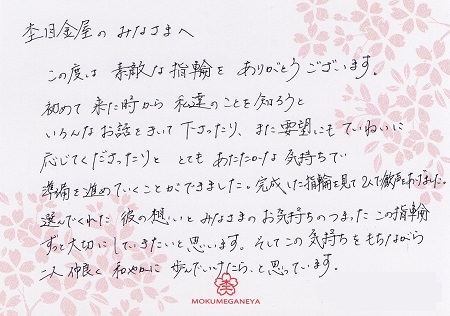 杢目金屋の みなさまへ
この度は 素敵な指輪を ありがとうございます。
初めて 来た時から 私達のことを知ろうと
いろんなお話をきいて下さったり、また要望にもていねいに
応じてくださったりと とてもあたたかな気持ちで
準備を進めていくことができました。完成した指輪を見て2人で歓声をあげました。
選んでくれた 彼の想いとみなさまのお気持ちのつまった この指輪
ずっと大切にしていきたいと思います。そしてこの気持ちをもちながら
二人仲良く 和やかに 歩んでいけたら、と思っています。
MOKUMEGANEYA